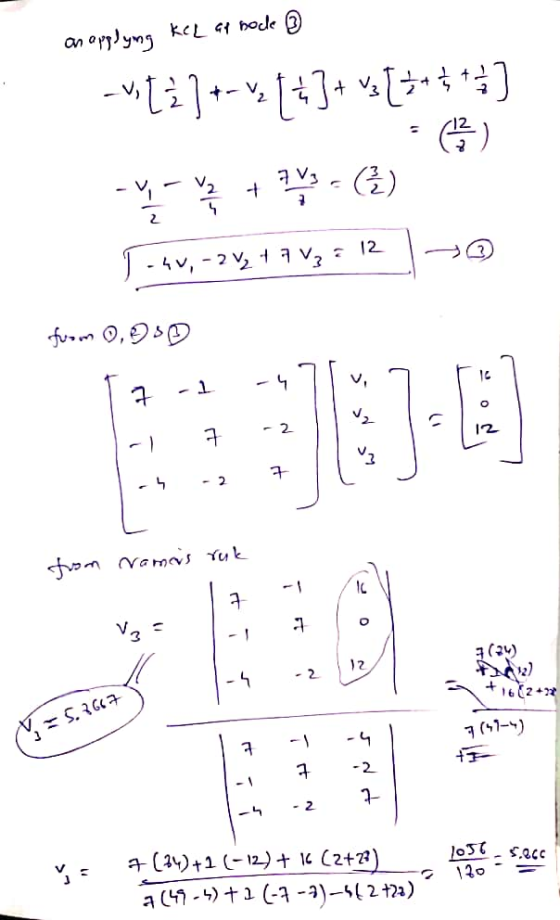 on applying KCL at node ③
-V₁[1/2] + -V₂[1/4] + V₃[1/2+1/4+1/8]
= (12/8)
-V₁/2 - V₂/4 + 7V₃/8 = (3/2)
-4V₁ -2V₂ + 7V₃ = 12 → ③
from ①, ② & ③
[7 -1 -4] [V₁] [16]
[-1 7 -2] [V₂] = [0]
[-4 -2 7] [V₃] [12]
from Cramer's rule
V₃ =
|7 -1 16|
|-1 7 0|
|-4 -2 12|
V₃ = 5.2667
|7 -1 -4|
|-1 7 -2|
|-4 -2 7|
= 7(84)
+16(2+28
7(49-4)
V₃ = 7(84)+1(-12)+16(2+28) / 7(49-4)+1(-7-8)-4(2+28) = 1056/180 = 5.866